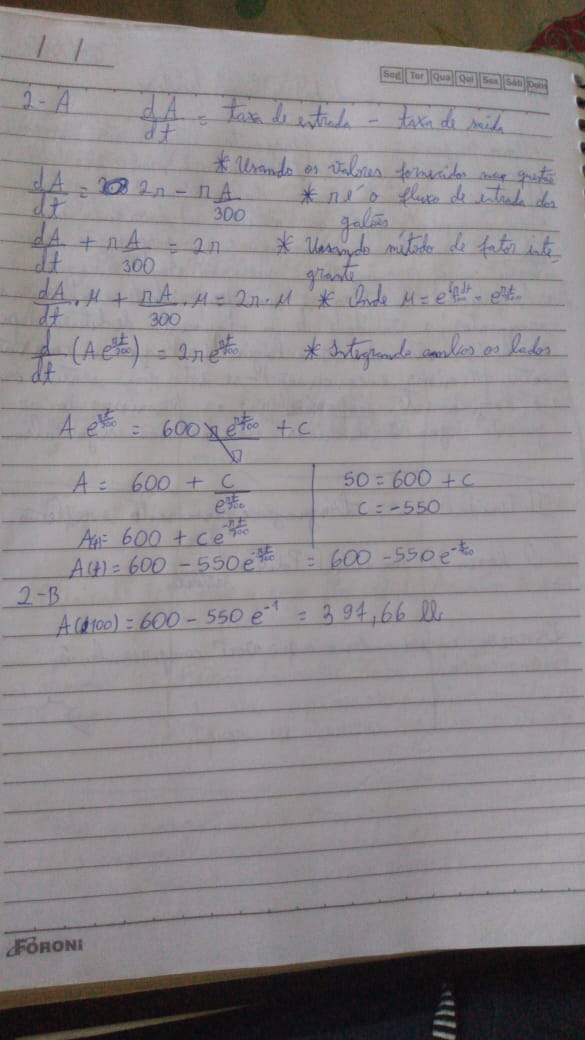 / /
Seg Ter Qua Qui Sex Sáb Dom
2-A dA/dt = taxa de entrada - taxa de saída
* Usando os valores fornecidos na questão
dA/dt = 2r - rA/300 * r é o fluxo de entrada dos galões
dA/dt + rA/300 = 2r * Usando método de fator integrante
dA/dt . μ + rA/300 . μ = 2r . μ * Onde μ = e^∫r dt/300 = e^rt/300
d/dt (A e^rt/300) = 2r e^rt/300 * Integrando ambos os lados
A e^rt/300 = 600 r e^rt/300 / r + c
A = 600 + c/e^rt/300 50 = 600 + c
c = -550
A(t) = 600 + c e^-rt/300
A(t) = 600 - 550 e^-rt/300 = 600 - 550 e^-t/100
2-B
A(100) = 600 - 550 e^-1 = 397,66 lb
FORONI